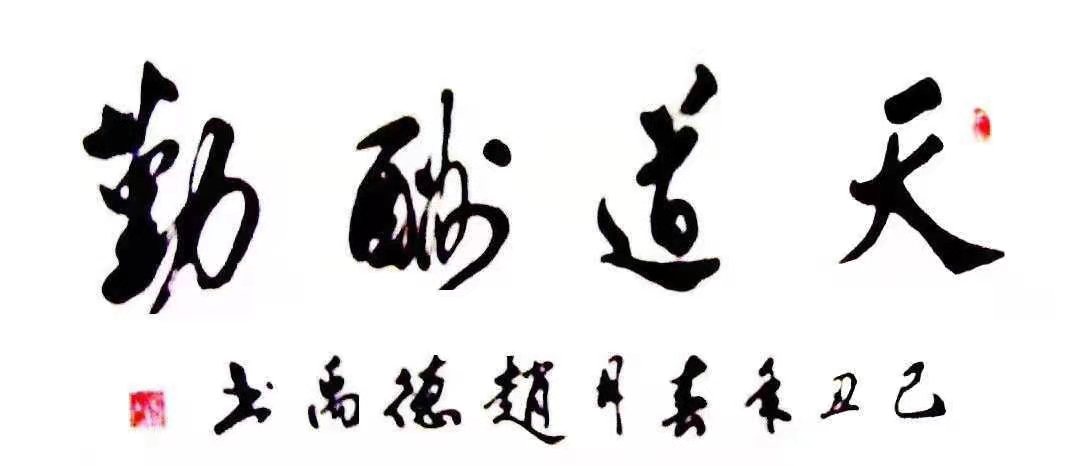 天道酬勤
己丑年春月趙德禹书